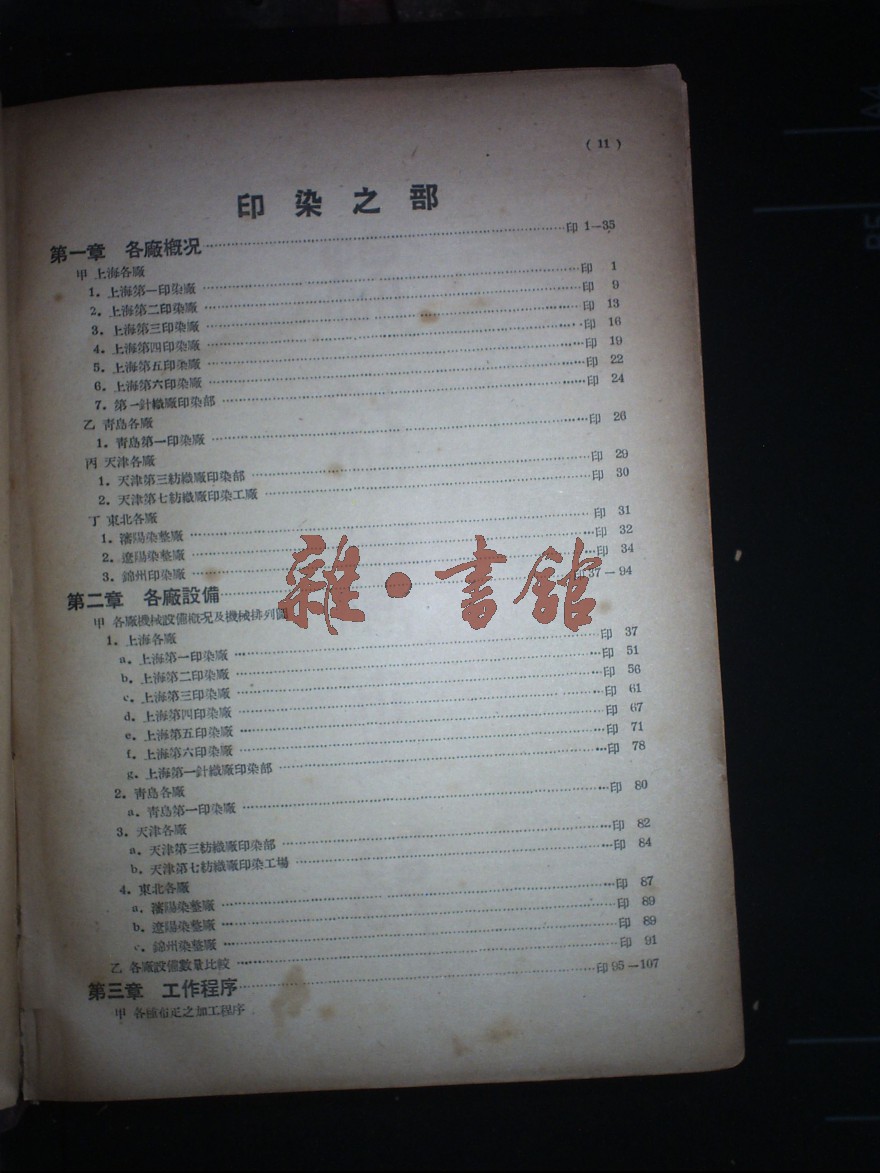 ( 11 )
印染之部
第一章 各廠概况……印 1—35
甲 上海各廠
1. 上海第一印染廠……印 1
2. 上海第二印染廠……印 9
3. 上海第三印染廠……印 13
4. 上海第四印染廠……印 16
5. 上海第五印染廠……印 19
6. 上海第六印染廠……印 22
7. 第一針織廠印染部……印 24
乙 青島各廠
1. 青島第一印染廠……印 26
丙 天津各廠
1. 天津第三紡織廠印染部……印 29
2. 天津第七紡織廠印染工廠……印 30
丁 東北各廠
1. 瀋陽染整廠……印 31
2. 遼陽染整廠……印 32
3. 錦州印染廠……印 34
第二章 各廠設備……印 37—94
甲 各廠機械設備概况及機械排列圖
1. 上海各廠
a. 上海第一印染廠……印 37
b. 上海第二印染廠……印 51
c. 上海第三印染廠……印 56
d. 上海第四印染廠……印 61
e. 上海第五印染廠……印 67
f. 上海第六印染廠……印 71
g. 上海第一針織廠印染部……印 78
2. 青島各廠
a. 青島第一印染廠……印 80
3. 天津各廠
a. 天津第三紡織廠印染部……印 82
b. 天津第七紡織廠印染工場……印 84
4. 東北各廠
a. 瀋陽染整廠……印 87
b. 遼陽染整廠……印 89
c. 錦州染整廠……印 89
乙 各廠設備數量比較……印 91
第三章 工作程序……印 95—107
甲 各種布疋之加工程序
雜·書館
A4
B5